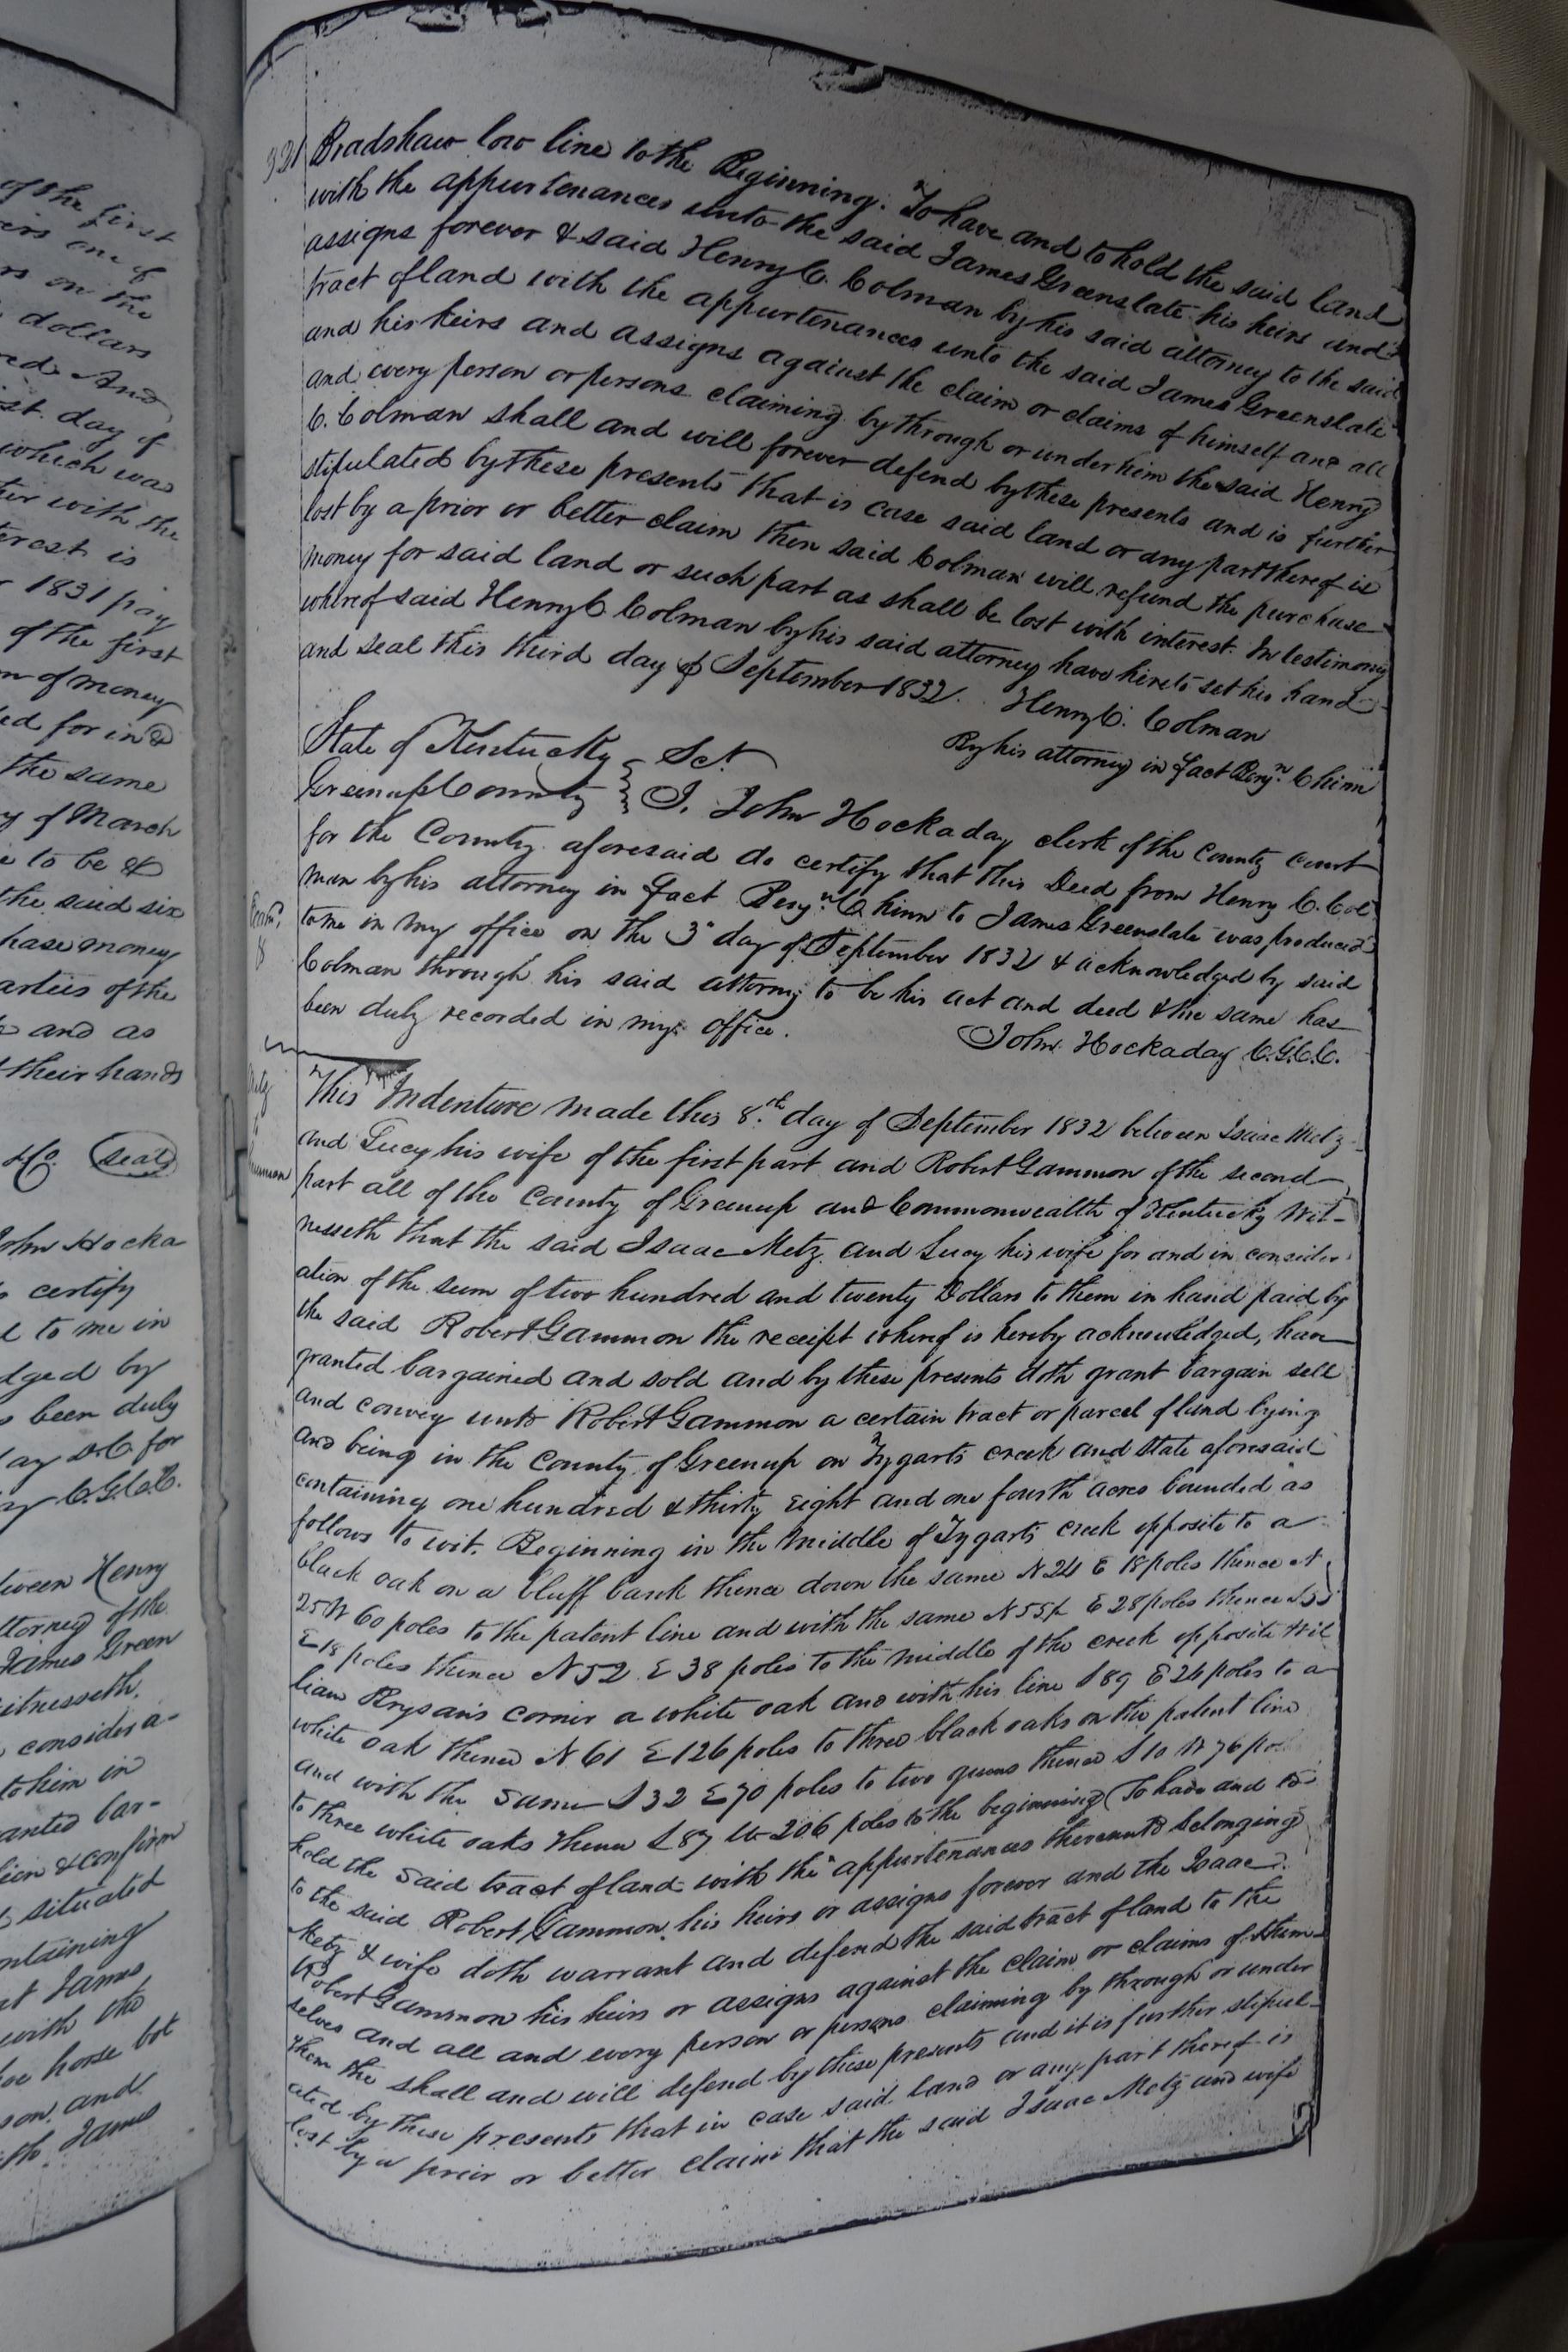 of the first
irs one of
rs on the
dollars
red And
st. day of
which was
ter with the
erest is
r 1831 pay
of the first
m of money
ed for in &
the same
y of March
e to be &
the said six
hase money
arties of the
and as
their hands
Ho. Seal
John Hocka
certify
l to me in
dged by
s been duly
ay D.C for
C.G.C.C.
tween Henry
ttorney of the
James Green
itnesseth
considera-
to him in
anted bar-
lien & confirm
situated
ntaining
at James
with the
horse bot
son. and
James
321
Bradshaw low line to the Beginning. To have and to hold the said land
with the appurtenances unto the said James Greenslate his heirs and
assigns forever & said Henry C. Colman by his said attorney to the said
tract of land with the appurtenances unto the said James Greenslate
and his heirs and assigns against the claim or claims of himself and all
and every person or persons claiming by through or under him the said Henry
C. Colman shall and will forever defend by these presents and is further
stipulated by these presents that is case said land or any part thereof is
lost by a prior or better claim then said Colman will refund the purchase
money for said land or such part as shall be lost with interest. In testimony
whereof said Henry C Colman by his said attorney have hereto set his hand
and seal this third day of September 1832. Henry C. Colman
By his attorney in fact Benjn. Chinn
State of Kentucky Sct.
Greenup County I, John Hockaday clerk of the County court
for the County aforesaid do certify that this Deed from Henry C. Col
man by his attorney in fact Benjn. Chinn to James Greenslate was produced
to me in my office on the 3d day of September 1832 & acknowledged by said
Colman through his said attorny to be his act and deed & the same has
been duly recorded in my office. John Hockaday C.G.C.C.
This Indenture made this 8th. day of September 1832 between Isaac Metz
and Lucy his wife of the first part and Robert Gammon of the second
part all of the County of Greenup and Commonwealth of Kentucky Wit-
nesseth that the said Isaac Metz and Lucy his wife for and in consider
ation of the sum of two hundred and twenty Dollars to them in hand paid by
the said Robert Gammon the receipt whereof is hereby acknowledged, have
granted bargained and sold and by these presents doth grant bargain sell
and convey unto Robert Gammon a certain tract or parcel of land lying
and being in the County of Greenup on Tygarts creek and state aforesaid
containing one hundred & thirty Eight and one fourth acres bounded as
follows to wit. Beginning in the middle of Tygarts creek opposite to a
black oak on a bluff bank thence down the same N 24 E 18 poles thence N
25 W 60 poles to the patent line and with the same N 55 E 28 poles thence
E 18 poles thence N 52 E 38 poles to the middle of the creek opposite Wil
liam Brysan's corner a white oak and with his line S 89 E 26 poles to a
white oak thence N 61 E 126 poles to three black oaks on the patent line
and with the same S 32 E 70 poles to two gums thence S 10 W 76 po
to three white oaks thence S 87 W 206 poles to the beginning To have and to
hold the said tract of land with the appurtenances thereunto belonging
to the said Robert Gammon his heirs or assigns forever and the Isaac
Metz & wife doth warrant and defend the said tract of land to the
Robert Gammon his heirs or assigns against the claim or claims of them-
selves and all and every person or persons claiming by through or under
them the shall and will defend by these presents and it is further stipul-
ated by these presents that in case said land or any part thereof is
lost by a prior or better claim that the said Isaac Metz and wife